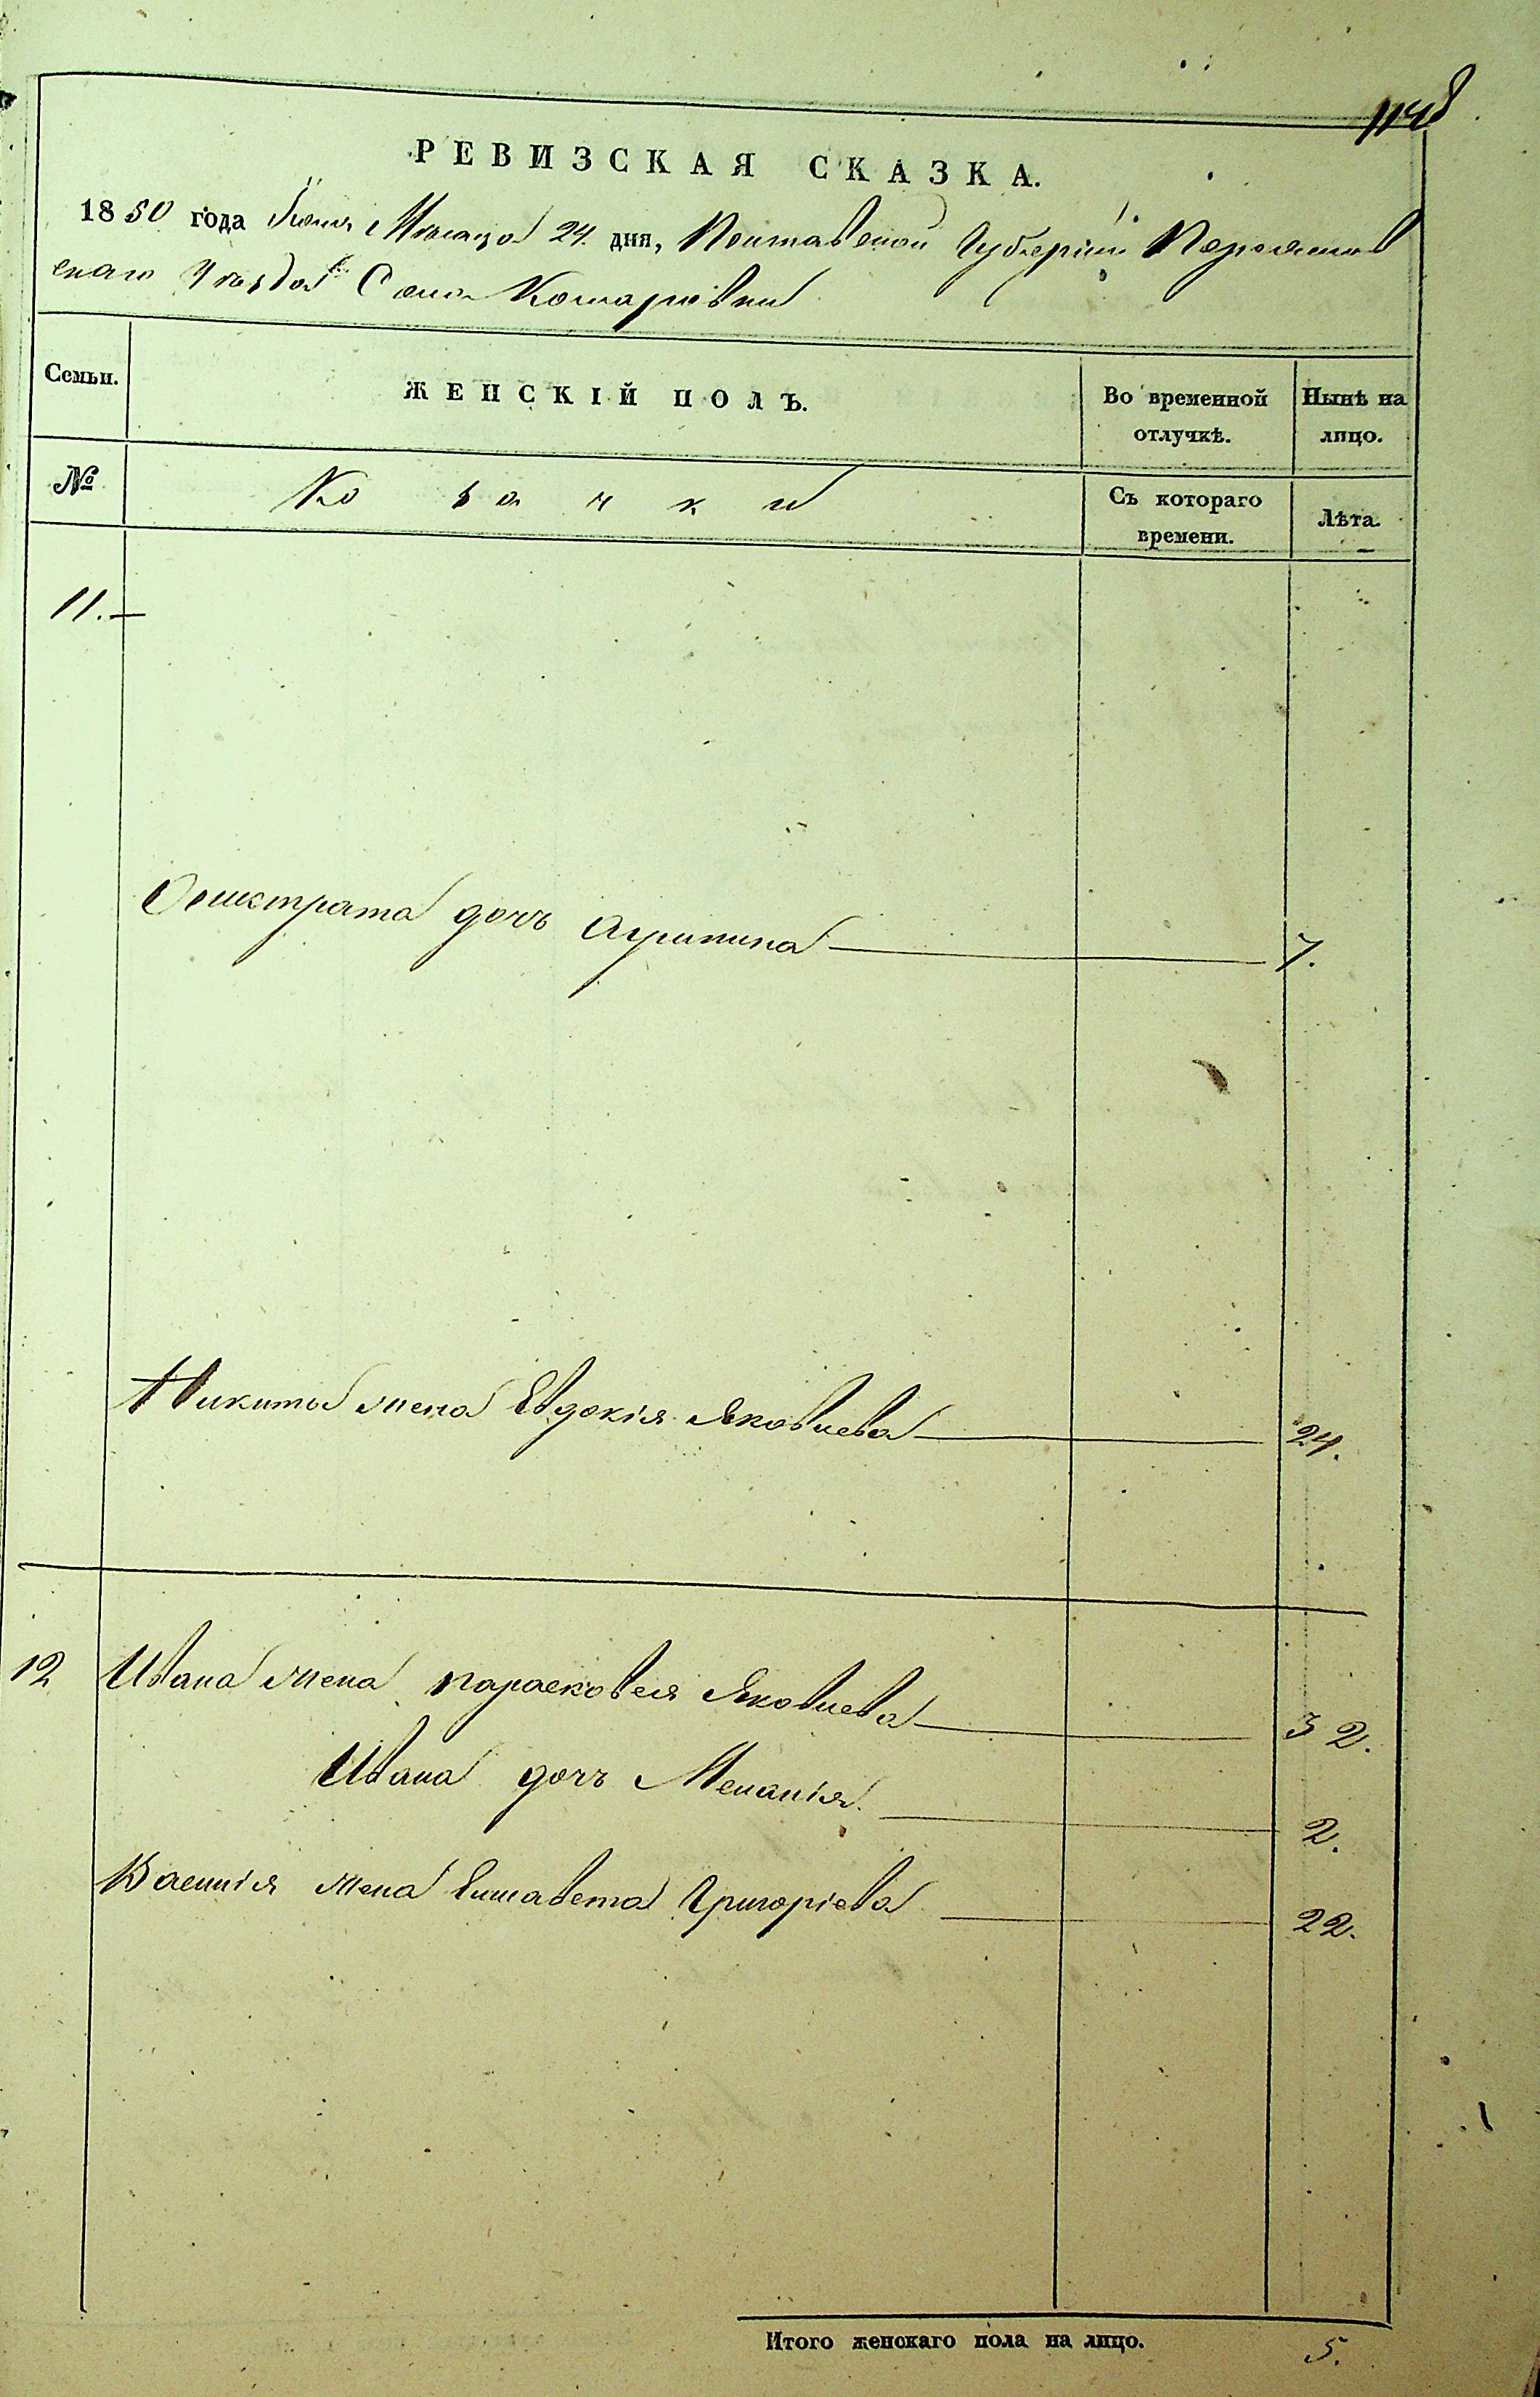 РЕВИЗСКАЯ СКАЗКА.
1850 года Іюня Месяца 24. дня, Полтавской Губерніи Переяслов
скаго Уезда Села Комаровки
Семьи.
ЖЕНСКІЙ ПОЛЪ.
Во временной
отлучкѣ.
Нынѣ на
лицо.
№
Козачки
Съ котораго
времени.
Лѣта.
11.
дочь Агрипина 7.
Никиты жена Евдокія Яковлева 24.
12 Ивана жена Парасковея Яковлева 32.
Ивана дочь Меланія. 2.
Василія жена Елисавета Григоріева 22.
Итого женскаго пола на лицо. 5.